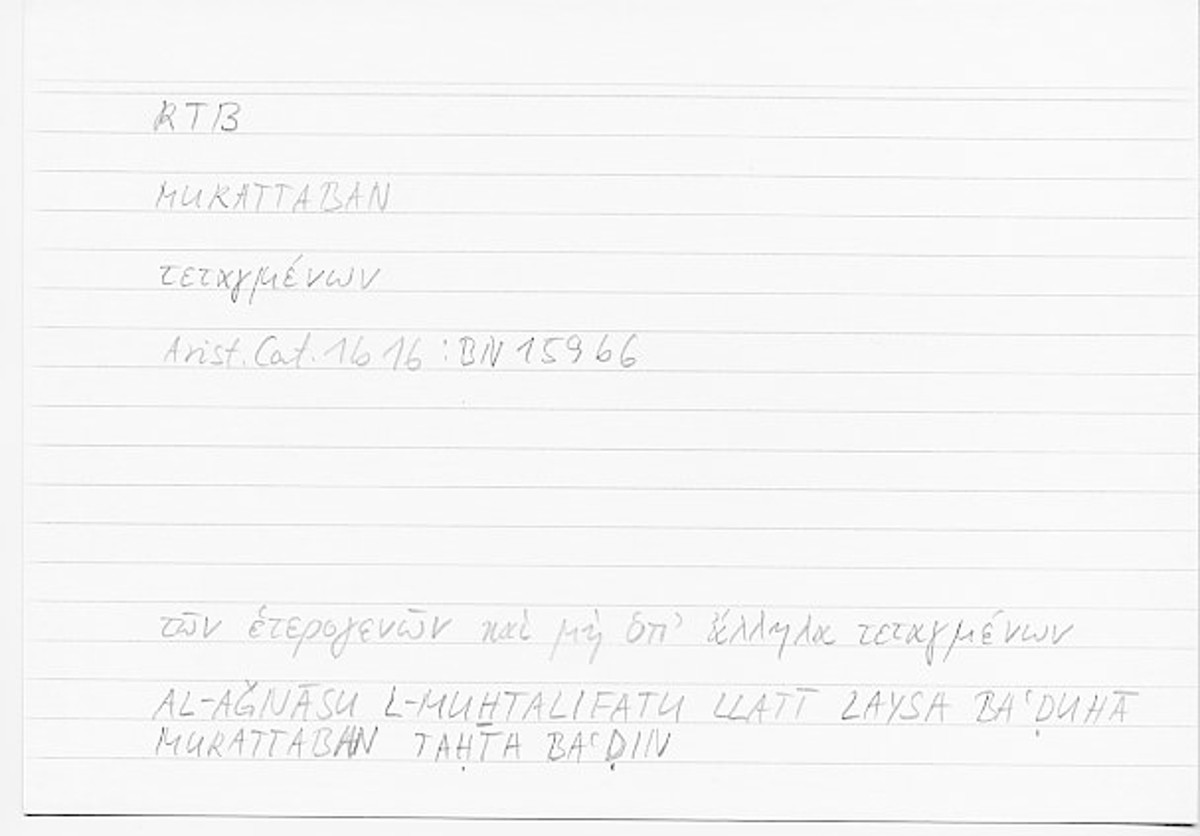 RTB
MURATTABAN
τεταγμένων
Arist. Cat. 1b 16 : BN 15966
τῶν ἑτερογενῶν καὶ μὴ ὑπ' ἄλληλα τεταγμένων
AL-AǦNĀSU L-MUHTALIFATU LLATĪ LAYSA BAʿḌUHĀ
MURATTABAN TAḤTA BAʿḌIN